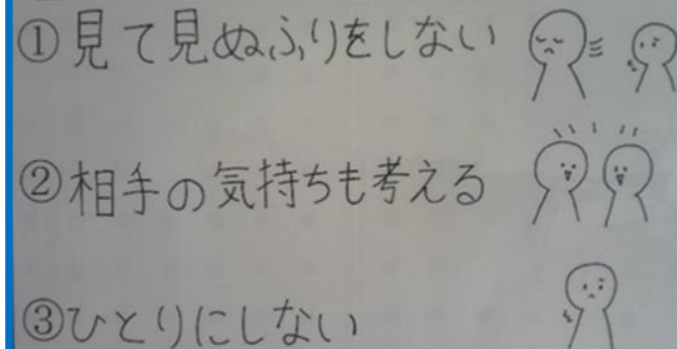 ①見て見ぬふりをしない
②相手の気持ちも考える
③ひとりにしない